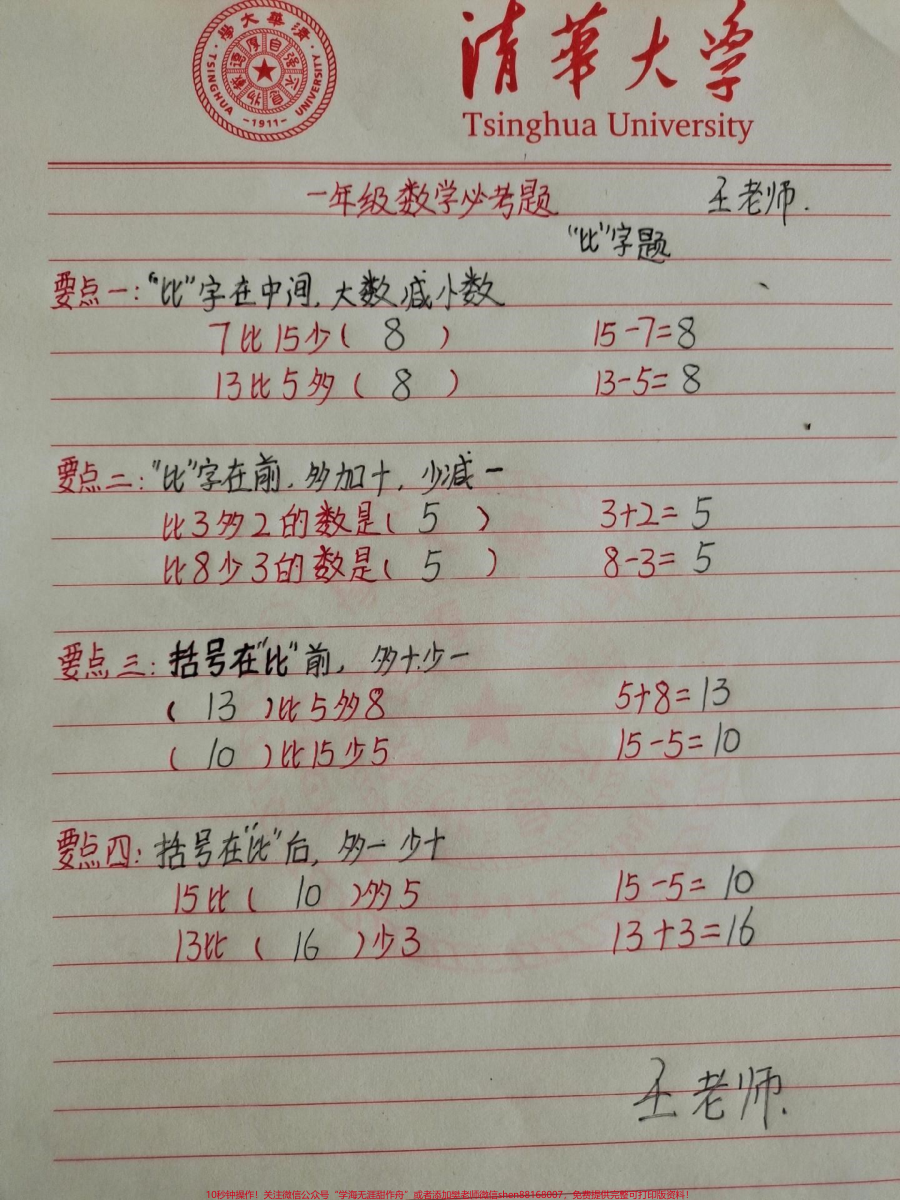 清華大学
Tsinghua University
·清華大學·
TSINGHUA UNIVERSITY
自强不息
厚德载物
-1911-
一年级数学必考题 王老师.
"比"字题
要点一:"比"字在中间,大数减小数
7比15少( 8 ) 15-7=8
13比5多( 8 ) 13-5=8
要点二:"比"字在前.多加十,少减一
比3多2的数是( 5 ) 3+2=5
比8少3的数是( 5 ) 8-3=5
要点三:括号在"比"前,多十少一
( 13 )比5多8 5+8=13
( 10 )比15少5 15-5=10
要点四:括号在"比"后,多一少十
15比( 10 )多5 15-5=10
13比( 16 )少3 13+3=16
王老师.
10秒钟操作!关注微信公众号"学海无涯甜作舟"或者添加樊老师微信shen88168007,免费提供完整可打印版资料!